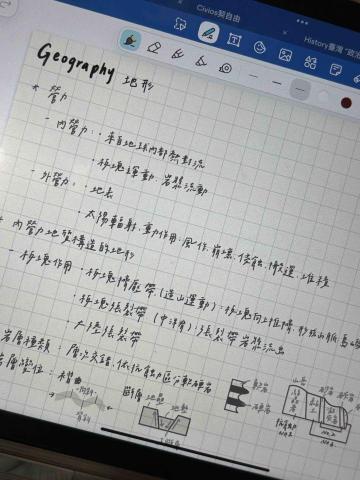 Civios契自由
History臺灣 "政治
Geography 地形
* 營力
- 內營力：· 來自地球內部熱對流
· 板塊運動、岩漿流動
- 外營力：· 地表
· 太陽輻射、重力作用：風作、崩壞、侵蝕、搬運、堆積
* 內營力地質構造的地形
- 板塊作用 · 板塊擠壓帶（造山運動）：板塊向上推擠，形成山脈
· 板塊張裂帶（中洋脊）：張裂帶岩漿流出
· 大陸張裂帶
岩層種類：層次交錯，依抗蝕力區分軟硬岩
岩層變位：褶曲
背斜
斷層
地壘
地塹
軟岩
硬岩